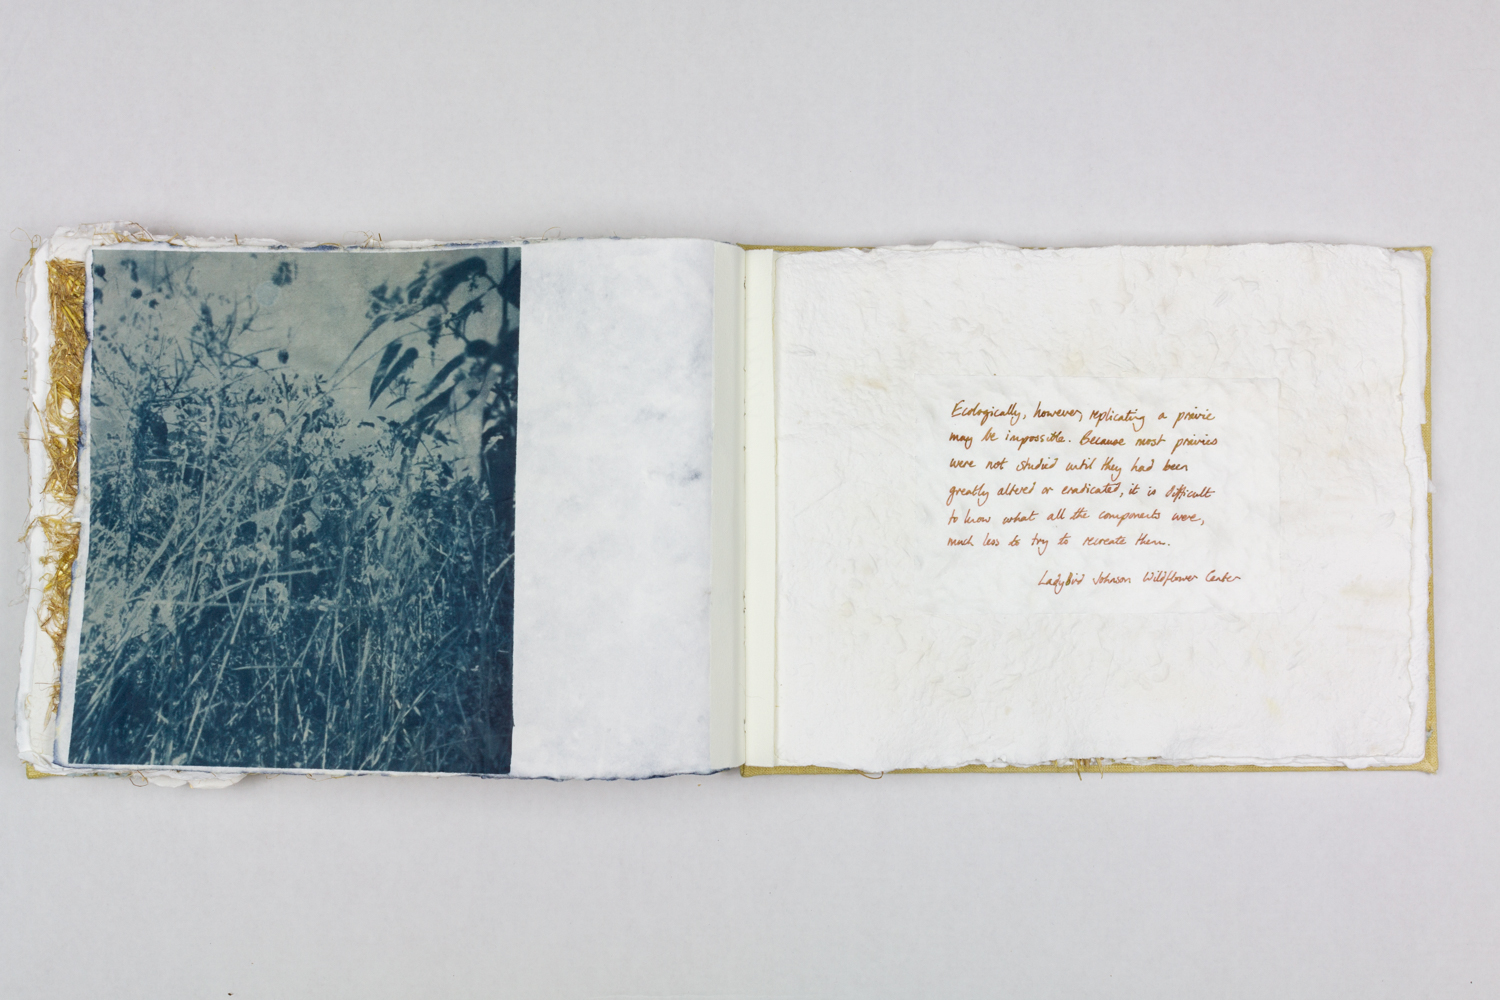 Ecologically, however, replicating a prairie
may be impossible. Because most prairies
were not studied until they had been
greatly altered or eradicated, it is difficult
to know what all the components were,
much less to try to recreate them.
Ladybird Johnson Wildflower Center